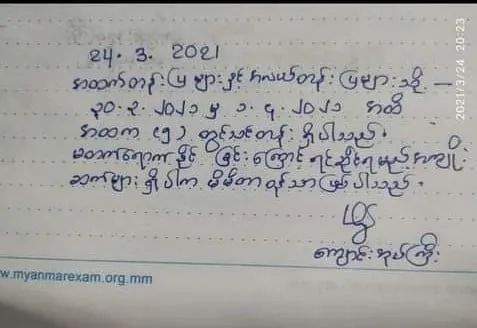 24. 3. 2021
အထက်တန်းပြ များနှင့် အလယ်တန်း ပြများသို့ —
၃၀. ၃. ၂၀၂၁ မှ ၁. ၄. ၂၀၂၁ အထိ
အထက (၅) တွင်သင်တန်း ရှိပါသည်.
မတက်ရောက်နိုင် ခြင်းကြောင့် ရင်ဆိုင်ရမည့်အကျိုး
ဆက်များ ရှိပါက မိမိတာဝန်သာဖြစ်ပါသည်.
ကျောင်းအုပ်ကြီး
w.myanmarexam.org.mm
2021/3/24 20:23